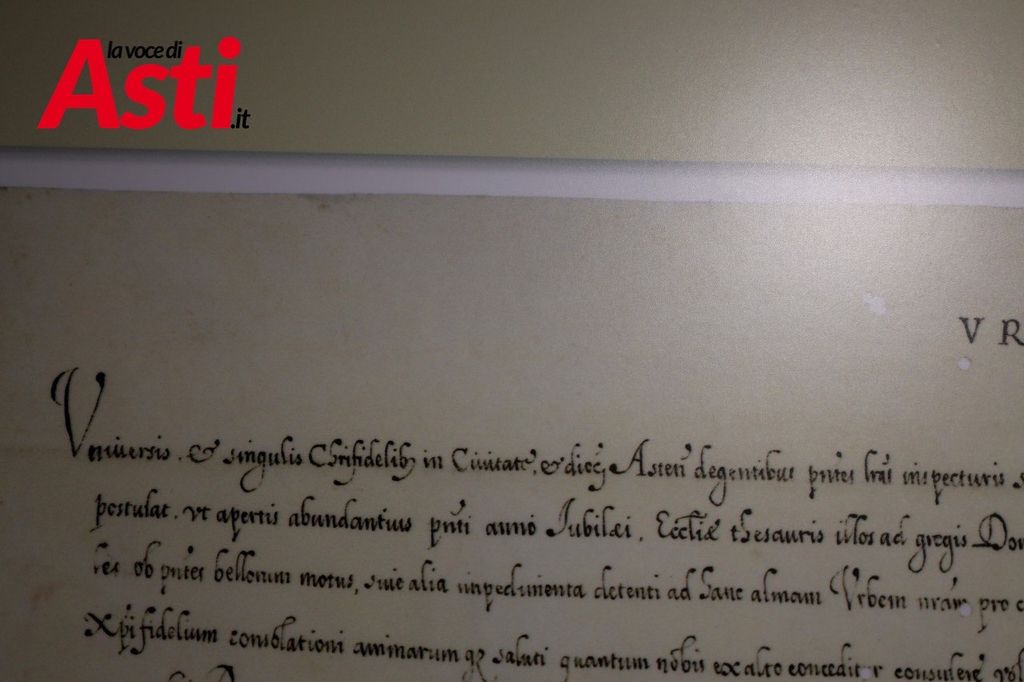 la voce di
Asti.it
V R
Vniuersis . & singulis Chrifidelibꝫ in Ciuitate, & dioc̄ Asten̄ degentibus pn̄tes lr̄as inspecturis
postulat . vt apertis abundantius pn̄ti anno Iubilæi . Eccl̄iæ thesauris illos ad gregis
ob pn̄tes bellorum motus, siue alia impedimenta detenti ad hanc almam Vrbem nr̄am pro
Xp̄ifidelium consolationi animarum qȝ saluti quantum nobis ex alto conceditur consulere